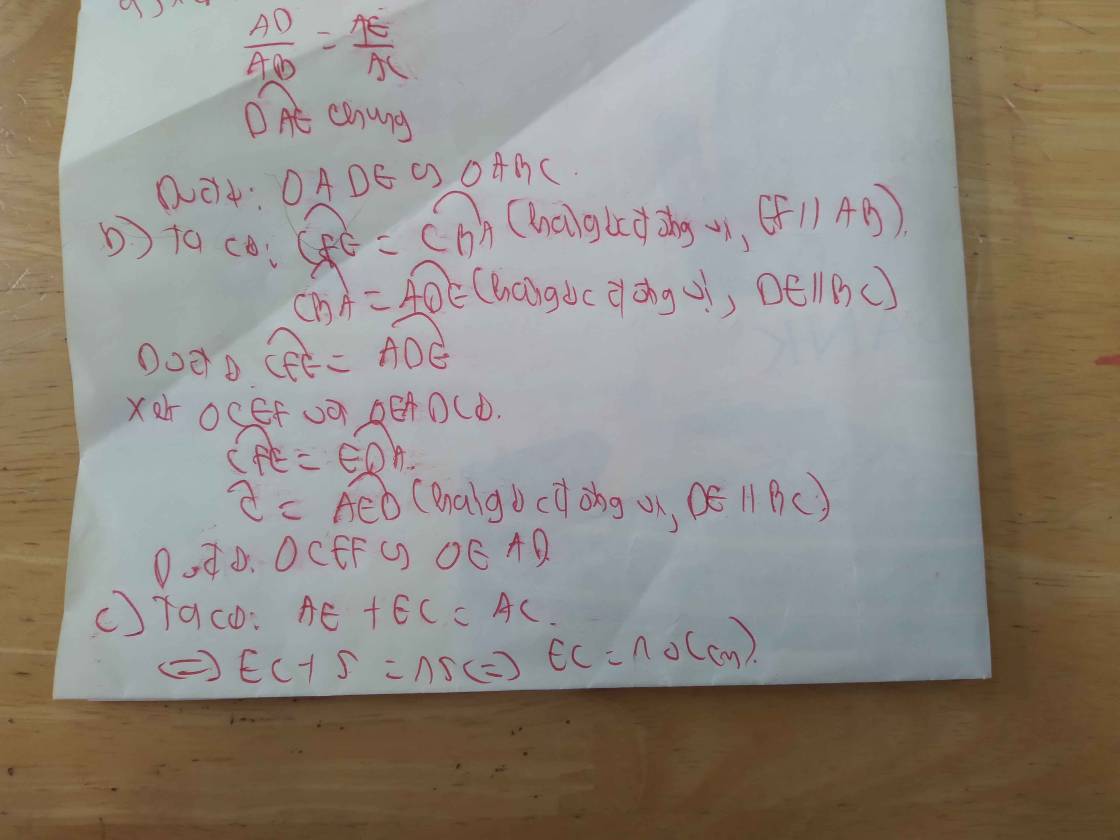 AD/AB = AE/AC
DAE chung
Do đó: ΔADE ∽ ΔABC.
b) Ta có: CFE = CBA (hai góc đồng vị, EF // AB).
CBA = ADE (hai góc đồng vị, DE // BC)
Do đó CFE = ADE
Xét ΔCEF và ΔEAD có.
CFE = EDA.
C = AED (hai góc đồng vị, DE // BC)
Do đó: ΔCEF ∽ ΔEAD
c) Ta có: AE + EC = AC.
<=> EC + 5 = 15 <=> EC = 10 (cm).